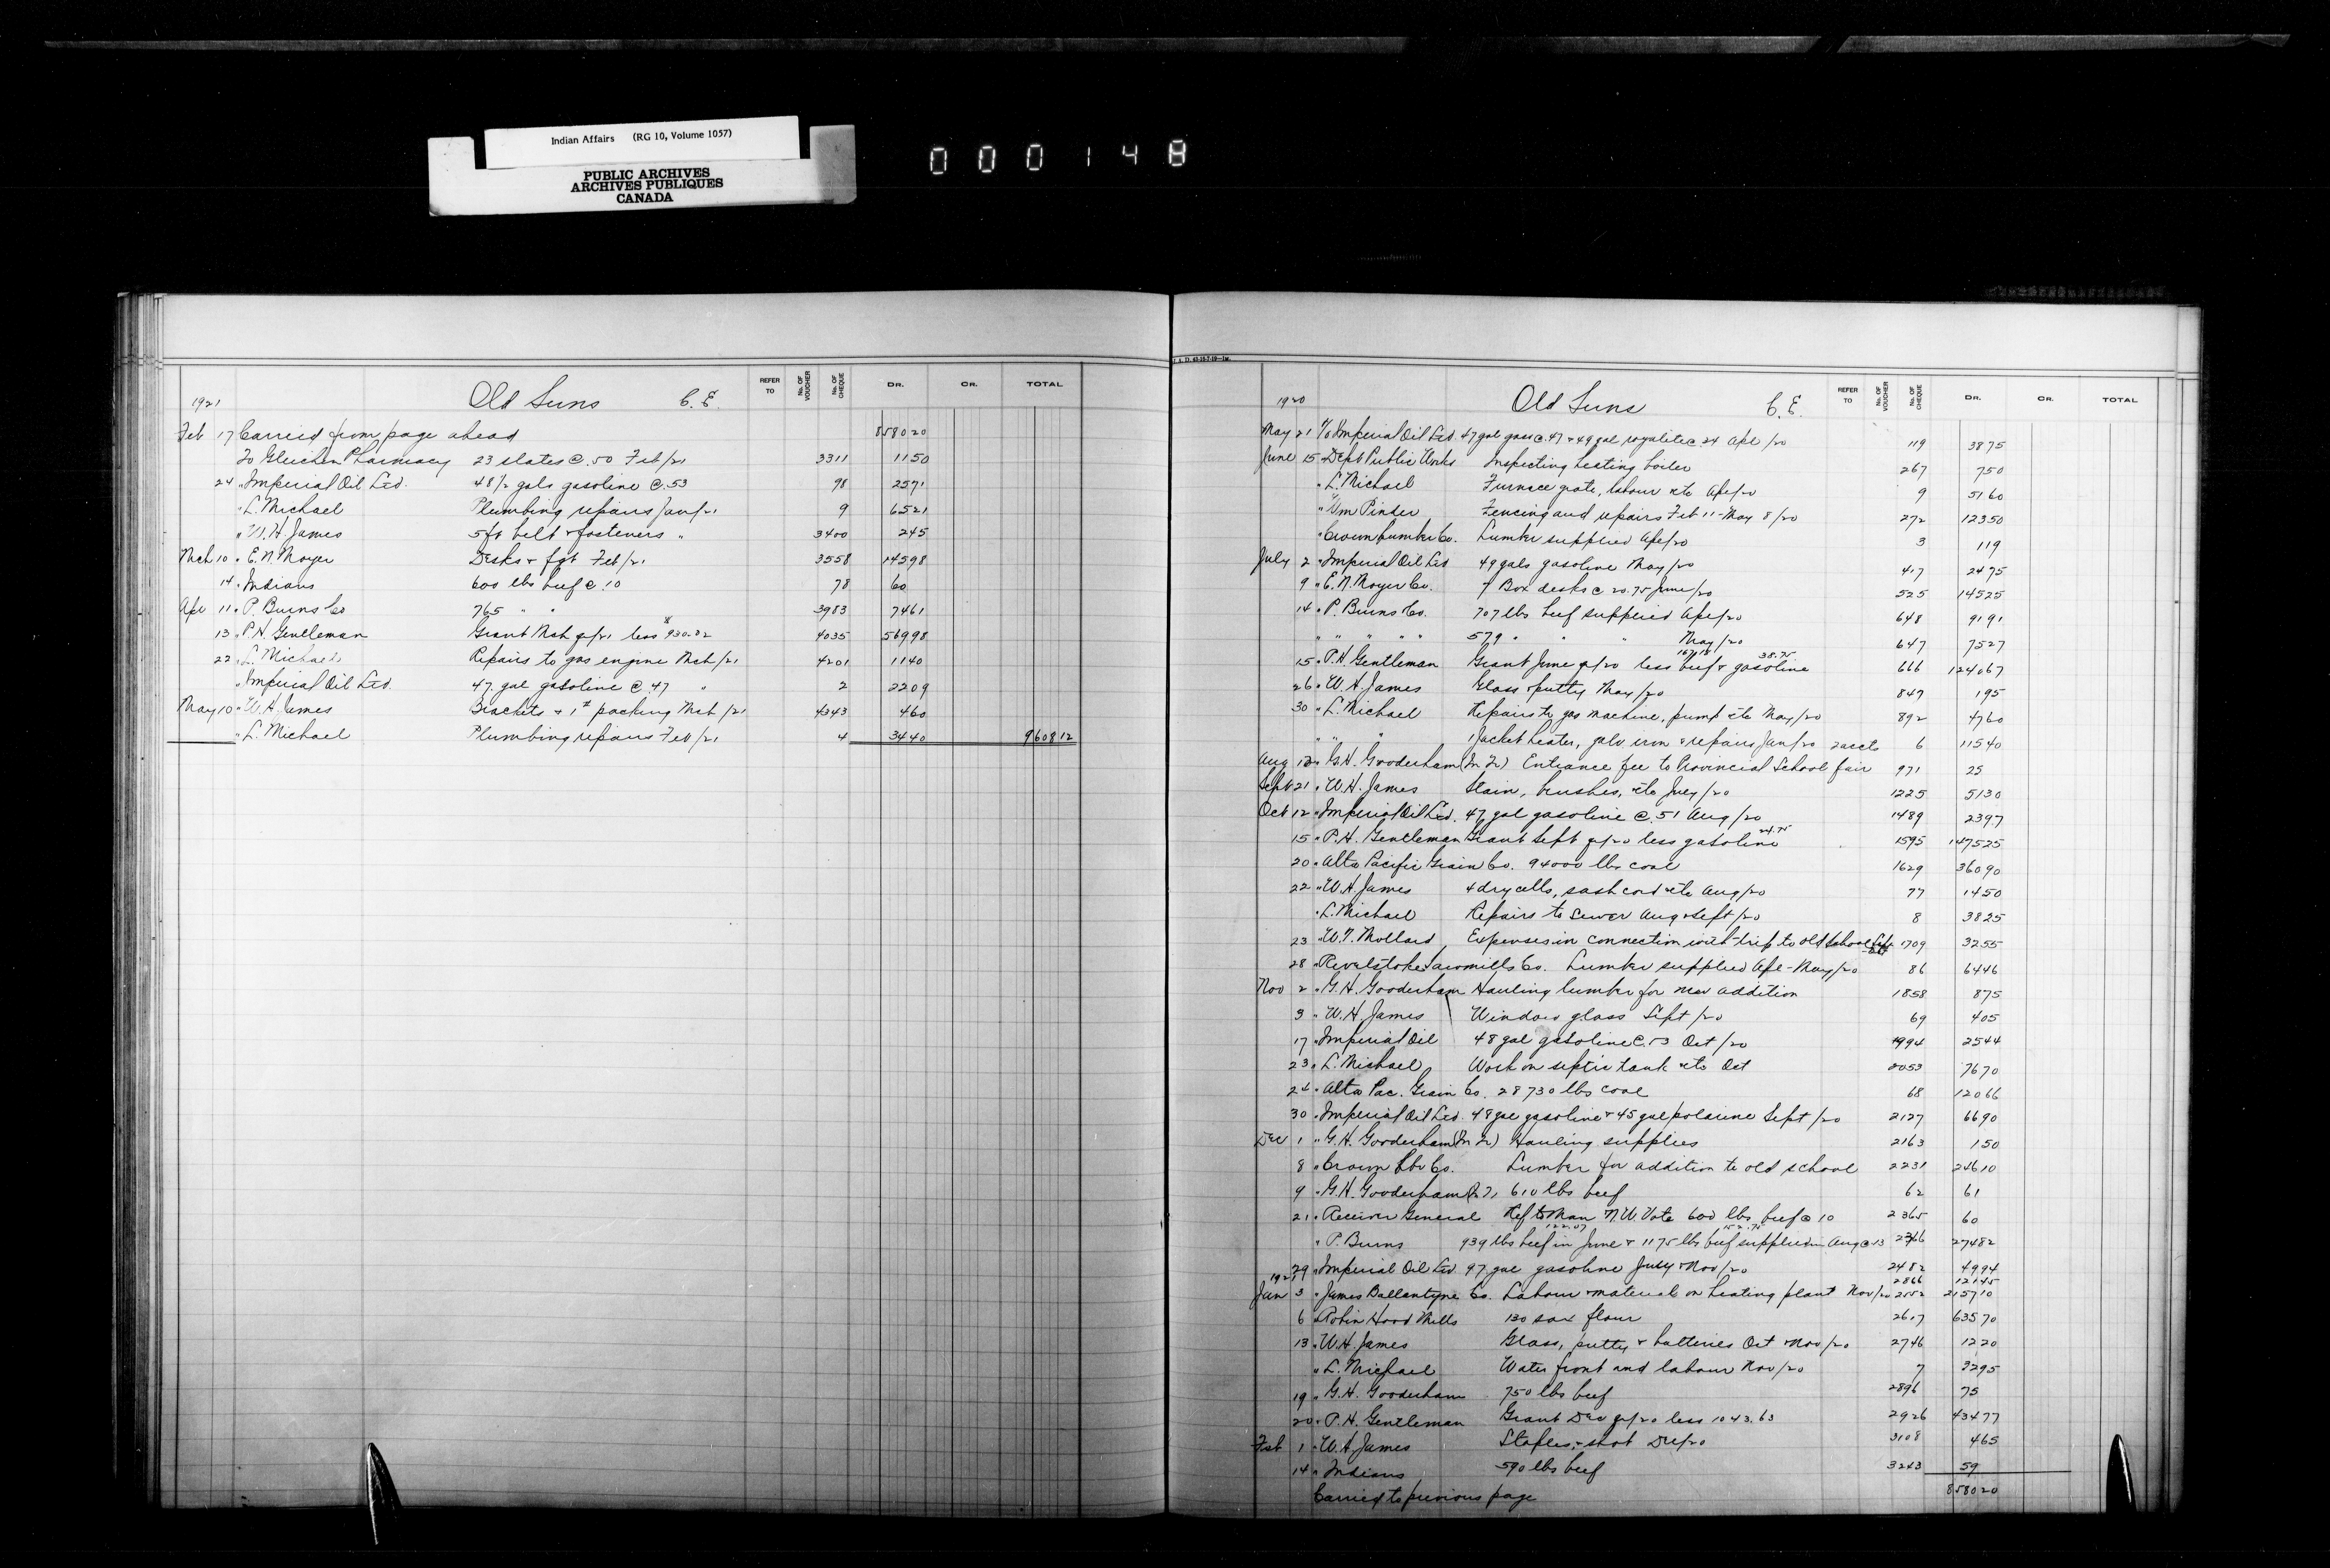 Indian Affairs (RG 10, Volume 1057)
PUBLIC ARCHIVES
ARCHIVES PUBLIQUES
CANADA
000148
1921 Old Suns C.E. REFER TO No. OF VOUCHER No. OF CHEQUE DR. CR. TOTAL
Feb 17 Carried from page ahead 8580 20
To Gleichen Pharmacy 23 slates @ .50 Feb/21 3311 11 50
24 " Imperial Oil Ltd. 48½ gals gasoline @ .53 98 25 71
" L. Michael Plumbing repairs Jan/21 9 65 21
" W.H. James 5 ft belt & fasteners " 3400 2 45
Mch 10 " E.N. Moyer Desks & fgt Feb/21 3558 145 98
14 " Indians 600 lbs beef @ .10 78 60
Apr 11 " P. Burns Co 765 " " 3983 74 61
13 " P.H. Gentleman Grant Mch q/21 less $930.02 4035 569 98
22 " L. Michael Repairs to gas engine Mch/21 4201 11 40
" Imperial Oil Ltd. 47 gal gasoline @ .47 " 2 22 09
May 10 " W.H. James Brackets & 1# packing Mch/21 4343 4 60
" L. Michael Plumbing repairs Feb/21 4 34 40 9608 12
1920 Old Suns C.E. REFER TO No. OF VOUCHER No. OF CHEQUE DR. CR. TOTAL
May 21 To Imperial Oil Ltd. 47 gal gaso @ .47 & 49 gal royalite @ 24 Apl/20 119 38 75
June 15 " Dept Public Works Inspecting heating boiler 267 7 50
" L. Michael Furnace grate, labour etc Apl/20 9 51 60
" Wm Pinder Fencing and repairs Feb 11 - May 8/20 272 123 50
" Crown Lumber Co. Lumber supplied Apl/20 3 1 19
July 2 " Imperial Oil Ltd 49 gals gasoline May/20 417 24 75
9 " E.N. Moyer Co. 7 Box desks @ 20.75 June/20 525 145 25
14 " P. Burns Co. 707 lbs beef supplied Apl/20 648 91 91
" " " " " 579 " " " May/20 647 75 27
15 " P.H. Gentleman Grant June q/20 less beef 167.18 & gasoline 38.75 666 1240 67
26 " W.H. James Glass & putty May/20 849 1 95
30 " L. Michael Repairs to gas machine, pump etc May/20 892 47 60
" " " 1 Jacket heater, galv iron & repairs Jan/20 2 accts 6 115 40
Aug 12 " G.H. Gooderham (In Tr) Entrance fee to Provincial School fair 971 25
Sept 21 " W.H. James Stain, brushes, etc July/20 1225 51 30
Oct 12 " Imperial Oil Ltd. 47 gal gasoline @ .51 Aug/20 1489 23 97
15 " P.H. Gentleman Grant Sept q/20 less gasoline 24.75 1595 1475 25
20 " Alta Pacific Grain Co. 94000 lbs coal 1629 360 90
22 " W.H. James 4 dry cells, sash cord etc Aug/20 77 14 50
" L. Michael Repairs to sewer Aug & Sept/20 8 38 25
23 " W.T. Mollard Expenses in connection with trip to old School Sept 1709 32 55
28 " Revelstoke Sawmills Co. Lumber supplied Apl - May/20 86 64 46
Nov 2 " G.H. Gooderham Hauling lumber for new addition 1858 8 75
3 " W.H. James Window glass Sept/20 69 4 05
17 " Imperial Oil 48 gal gasoline @ .53 Oct/20 1994 25 44
23 " L. Michael Work on septic tank etc Oct 2053 76 70
24 " Alta Pac. Grain Co. 28730 lbs coal 68 120 66
30 " Imperial Oil Ltd. 48 gal gasoline & 45 gal polarine Sept/20 2127 66 90
Dec 1 " G.H. Gooderham (In Tr) Hauling supplies 2163 1 50
8 " Crown Lbr Co. Lumber for addition to old school 2231 246 10
9 " G.H. Gooderham 610 lbs beef 62 61
21 " Receiver General Ref to Man N.W. Vote 600 lbs beef @ 10 2365 60
" P. Burns 939 lbs beef in June 122.07 & 1175 lbs beef supplied in Aug @ 13 152.75 2366 274 82
29 " Imperial Oil Ltd. 97 gal gasoline July & Nov/20 2482 49 94
1921 2866 121 45
Jan 3 " James Ballantyne Co. Labour & material on heating plant Nov/20 2552 2157 10
6 " Robin Hood Mills 130 sax flour 2617 635 70
13 " W.H. James Glass, putty & batteries Oct & Nov/20 2746 12 20
" L. Michael Water front and labour Nov/20 7 32 95
19 " G.H. Gooderham 750 lbs beef 2896 75
20 " P.H. Gentleman Grant Dec q/20 less 1043.63 2926 434 77
Feb 1 " W.H. James Staples & shot Dec/20 3108 4 65
14 " Indians 590 lbs beef 3243 59
Carried to previous page 8580 20